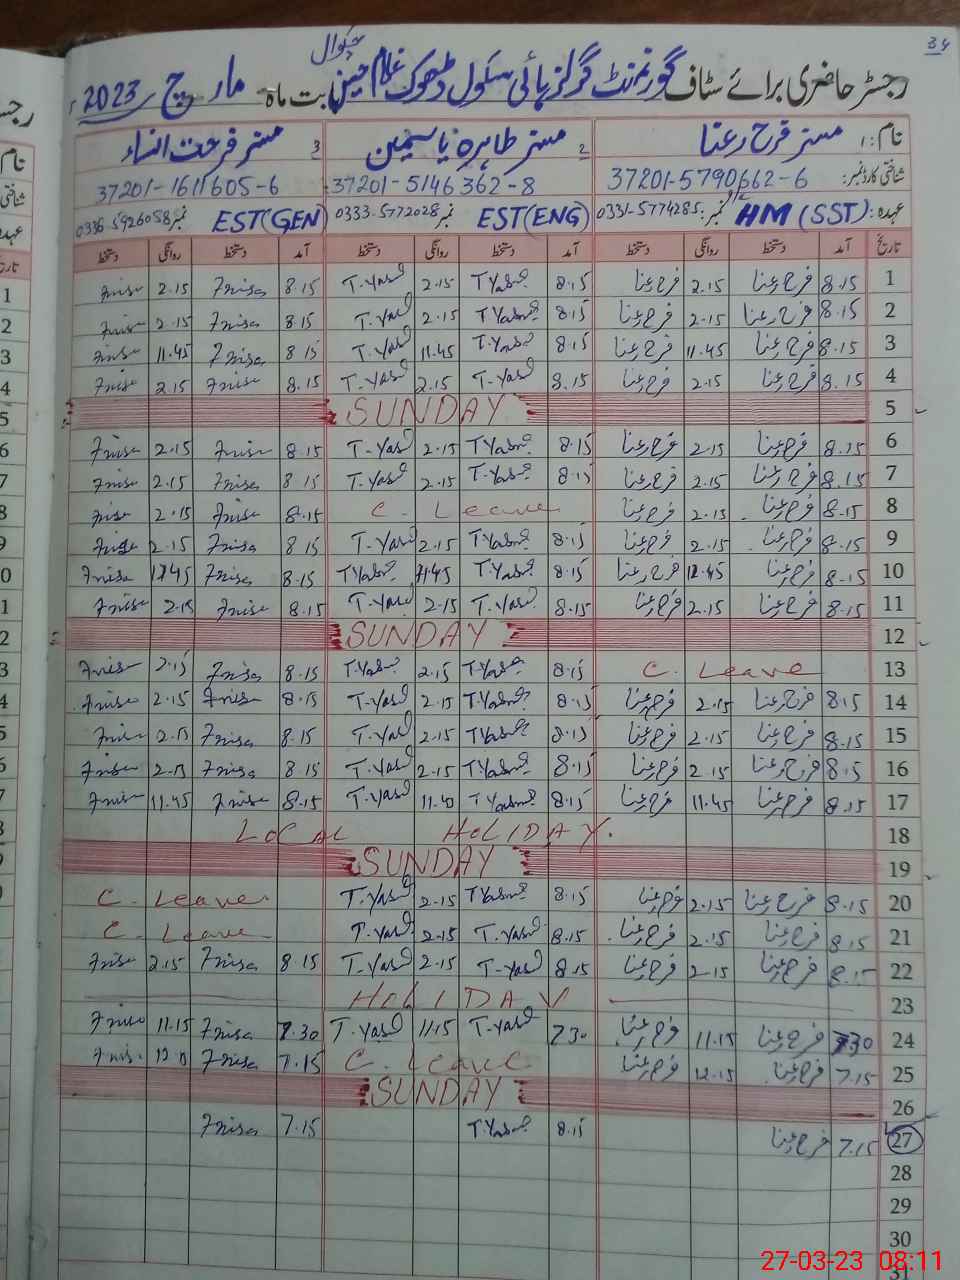 34
چکوال
رجسٹر حاضری برائے سٹاف گورنمنٹ گرلز ہائی سکول ڈھوک غلام حسین بابت ماہ مارچ 2023ء
نام: 1 مسز فرح رعنا 2 مسز طاہرہ یاسمین 3 مسز فرحت النساء
شناختی کارڈ نمبر: 37201-5790662-6 37201-5146362-8 37201-1611605-6
عہدہ: HM (SST) نمبر: 0331-5774285 EST(ENG) نمبر 0333-5772028 EST(GEN) نمبر 0336-5926058
تاریخ آمد دستخط روانگی دستخط آمد دستخط روانگی دستخط آمد دستخط روانگی دستخط
1 8.15 فرح رعنا 2.15 فرح رعنا 8.15 T.Yasm 2.15 T.Yasm 8.15 Fnisa 2.15 Fnisa
2 8.15 فرح رعنا 2.15 فرح رعنا 8.15 T.Yasm 2.15 T.Yasm 8.15 Fnisa 2.15 Fnisa
3 8.15 فرح رعنا 11.45 فرح رعنا 8.15 T.Yasm 11.45 T.Yasm 8.15 Fnisa 11.45 Fnisa
4 8.15 فرح رعنا 2.15 فرح رعنا 8.15 T.Yasm 2.15 T.Yasm 8.15 Fnisa 2.15 Fnisa
5 SUNDAY
6 8.15 فرح رعنا 2.15 فرح رعنا 8.15 T.Yasm 2.15 T.Yasm 8.15 Fnisa 2.15 Fnisa
7 8.15 فرح رعنا 2.15 فرح رعنا 8.15 T.Yasm 2.15 T.Yasm 8.15 Fnisa 2.15 Fnisa
8 8.15 فرح رعنا 2.15 فرح رعنا C. Leave 8.15 Fnisa 2.15 Fnisa
9 8.15 فرح رعنا 2.15 فرح رعنا 8.15 T.Yasm 2.15 T.Yasm 8.15 Fnisa 2.15 Fnisa
10 8.15 فرح رعنا 11.45 فرح رعنا 8.15 T.Yasm 11.45 T.Yasm 8.15 Fnisa 11.45 Fnisa
11 8.15 فرح رعنا 2.15 فرح رعنا 8.15 T.Yasm 2.15 T.Yasm 8.15 Fnisa 2.15 Fnisa
12 SUNDAY
13 C. Leave 8.15 T.Yasm 2.15 T.Yasm 8.15 Fnisa 2.15 Fnisa
14 8.15 فرح رعنا 2.15 فرح رعنا 8.15 T.Yasm 2.15 T.Yasm 8.15 Fnisa 2.15 Fnisa
15 8.15 فرح رعنا 2.15 فرح رعنا 8.15 T.Yasm 2.15 T.Yasm 8.15 Fnisa 2.15 Fnisa
16 8.15 فرح رعنا 2.15 فرح رعنا 8.15 T.Yasm 2.15 T.Yasm 8.15 Fnisa 2.15 Fnisa
17 8.15 فرح رعنا 11.45 فرح رعنا 8.15 T.Yasm 11.40 T.Yasm 8.15 Fnisa 11.45 Fnisa
18 LOCAL HOLIDAY.
19 SUNDAY
20 8.15 فرح رعنا 2.15 فرح رعنا 8.15 T.Yasm 2.15 T.Yasm C. Leave
21 8.15 فرح رعنا 2.15 فرح رعنا 8.15 T.Yasm 2.15 T.Yasm C. Leave
22 8.15 فرح رعنا 2.15 فرح رعنا 8.15 T.Yasm 2.15 T.Yasm 8.15 Fnisa 2.15 Fnisa
23 HOLIDAY
24 7.30 فرح رعنا 11.15 فرح رعنا 7.30 T.Yasm 11.15 T.Yasm 7.30 Fnisa 11.15 Fnisa
25 7.15 فرح رعنا 12.15 فرح رعنا C. Leave 7.15 Fnisa Fnisa
26 SUNDAY
27 7.15 فرح رعنا 8.15 T.Yasm 7.15 Fnisa
28
29
30
31
27-03-23 08:11